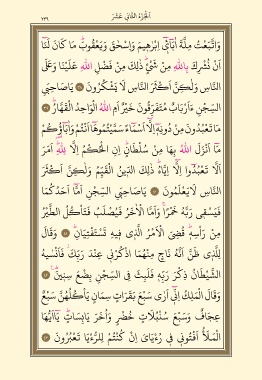 اَلْجُزْءُ الثَّانِي عَشَرَ
٢٣٩
وَاتَّبَعْتُ مِلَّةَ اٰبَٓاء۪ٓي اِبْرٰه۪يمَ وَاِسْحٰقَ وَيَعْقُوبَۜ مَا كَانَ لَنَٓا
اَنْ نُشْرِكَ بِاللّٰهِ مِنْ شَيْءٍۜ ذٰلِكَ مِنْ فَضْلِ اللّٰهِ عَلَيْنَا وَعَلَى
النَّاسِ وَلٰكِنَّ اَكْثَرَ النَّاسِ لَا يَشْكُرُونَ ٣٨ يَا صَاحِبَيِ
السِّجْنِ ءَاَرْبَابٌ مُتَفَرِّقُونَ خَيْرٌ اَمِ اللّٰهُ الْوَاحِدُ الْقَهَّارُۜ ٣٩
مَا تَعْبُدُونَ مِنْ دُونِه۪ٓ اِلَّٓا اَسْمَٓاءً سَمَّيْتُمُوهَٓا اَنْتُمْ وَاٰبَٓاؤُ۬كُمْ
مَٓا اَنْزَلَ اللّٰهُ بِهَا مِنْ سُلْطَانٍۜ اِنِ الْحُكْمُ اِلَّا لِلّٰهِۜ اَمَرَ
اَلَّا تَعْبُدُٓوا اِلَّٓا اِيَّاهُۜ ذٰلِكَ الدّ۪ينُ الْقَيِّمُ وَلٰكِنَّ اَكْثَرَ
النَّاسِ لَا يَعْلَمُونَ ٤٠ يَا صَاحِبَيِ السِّجْنِ اَمَّٓا اَحَدُكُمَا
فَيَسْق۪ي رَبَّهُ خَمْرًاۚ وَاَمَّا الْاٰخَرُ فَيُصْلَبُ فَتَأْكُلُ الطَّيْرُ
مِنْ رَأْسِه۪ۜ قُضِيَ الْاَمْرُ الَّذ۪ي ف۪يهِ تَسْتَفْتِيَانِۜ ٤١ وَقَالَ
لِلَّذ۪ي ظَنَّ اَنَّهُ نَاجٍ مِنْهُمَا اذْكُرْن۪ي عِنْدَ رَبِّكَۘ فَاَنْسٰيهُ
الشَّيْطَانُ ذِكْرَ رَبِّه۪ فَلَبِثَ فِي السِّجْنِ بِضْعَ سِن۪ينَۜ ٤٢
وَقَالَ الْمَلِكُ اِنّ۪ٓي اَرٰى سَبْعَ بَقَرَاتٍ سِمَانٍ يَأْكُلُهُنَّ سَبْعٌ
عِجَافٌ وَسَبْعَ سُنْبُلَاتٍ خُضْرٍ وَاُخَرَ يَابِسَاتٍۜ يَٓا اَيُّهَا
الْمَلَأُ اَفْتُون۪ي ف۪ي رُءْيَايَ اِنْ كُنْتُمْ لِلرُّءْيَا تَعْبُرُونَ ٤٣